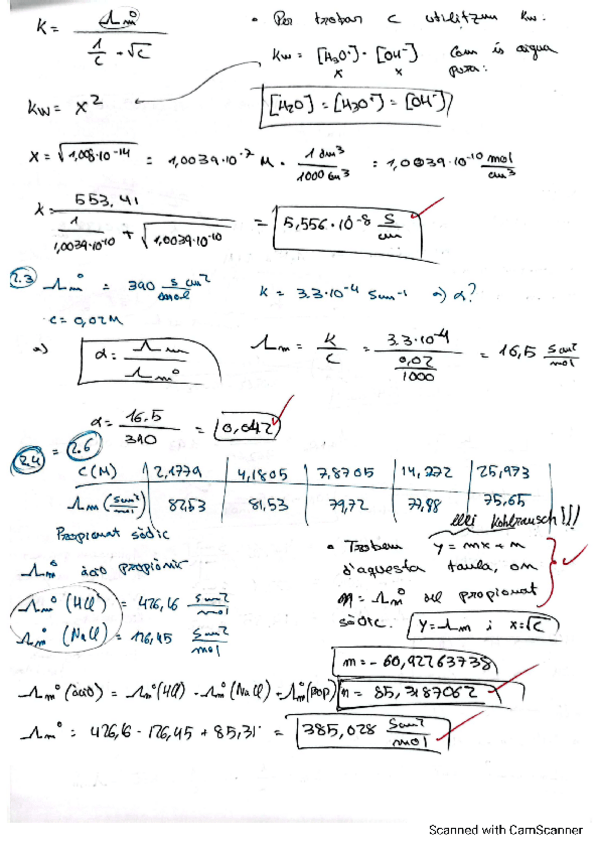 K = Λm° / (1/c + √c)
• Per trobar c utilitzem Kw:
Kw = [H3O+] · [OH-] Com és aigua
x x pura:
Kw = x²
[H2O] = [H3O+] = [OH-]
x = √1,008·10-14 = 1,0039·10-7 M · 1 dm³ / 1000 cm³ = 1,0039·10-10 mol/cm³
K = 553,41 / (1/1,0039·10-10 + √1,0039·10-10) = 5,556·10-8 S/cm
2.3 Λm° = 390 S cm²/mol K = 3.3·10-4 S cm-1 a) α?
c = 0,02M
a) α = Λm / Λm° Λm = K/C = 3.3·10-4 / (0,02/1000) = 16,5 S cm²/mol
α = 16.5 / 390 = 0,042
2.4 = 2.6
C(M) 2,1779 4,1805 7,8705 14,272 25,973
Λm (S cm²/mol) 82,53 81,53 79,72 77,88 75,65
Propionat sòdic
llei Kohlrausch!!!
• Trobem y = mx + n
Λm° àcid propiònic
d'aquesta taula, on
Λm° (HCl) = 426,16 S cm²/mol
n = Λm° del propionat
sòdic. Y = Λm i x = √c
Λm° (NaCl) = 126,45 S cm²/mol
m = - 60,92263738
Λm° (àcid) = Λm° (HCl) - Λm° (NaCl) + Λm° (prop) n = 85,3187062
Λm° = 426,16 - 126,45 + 85,31 = 385,028 S cm²/mol
Scanned with CamScanner